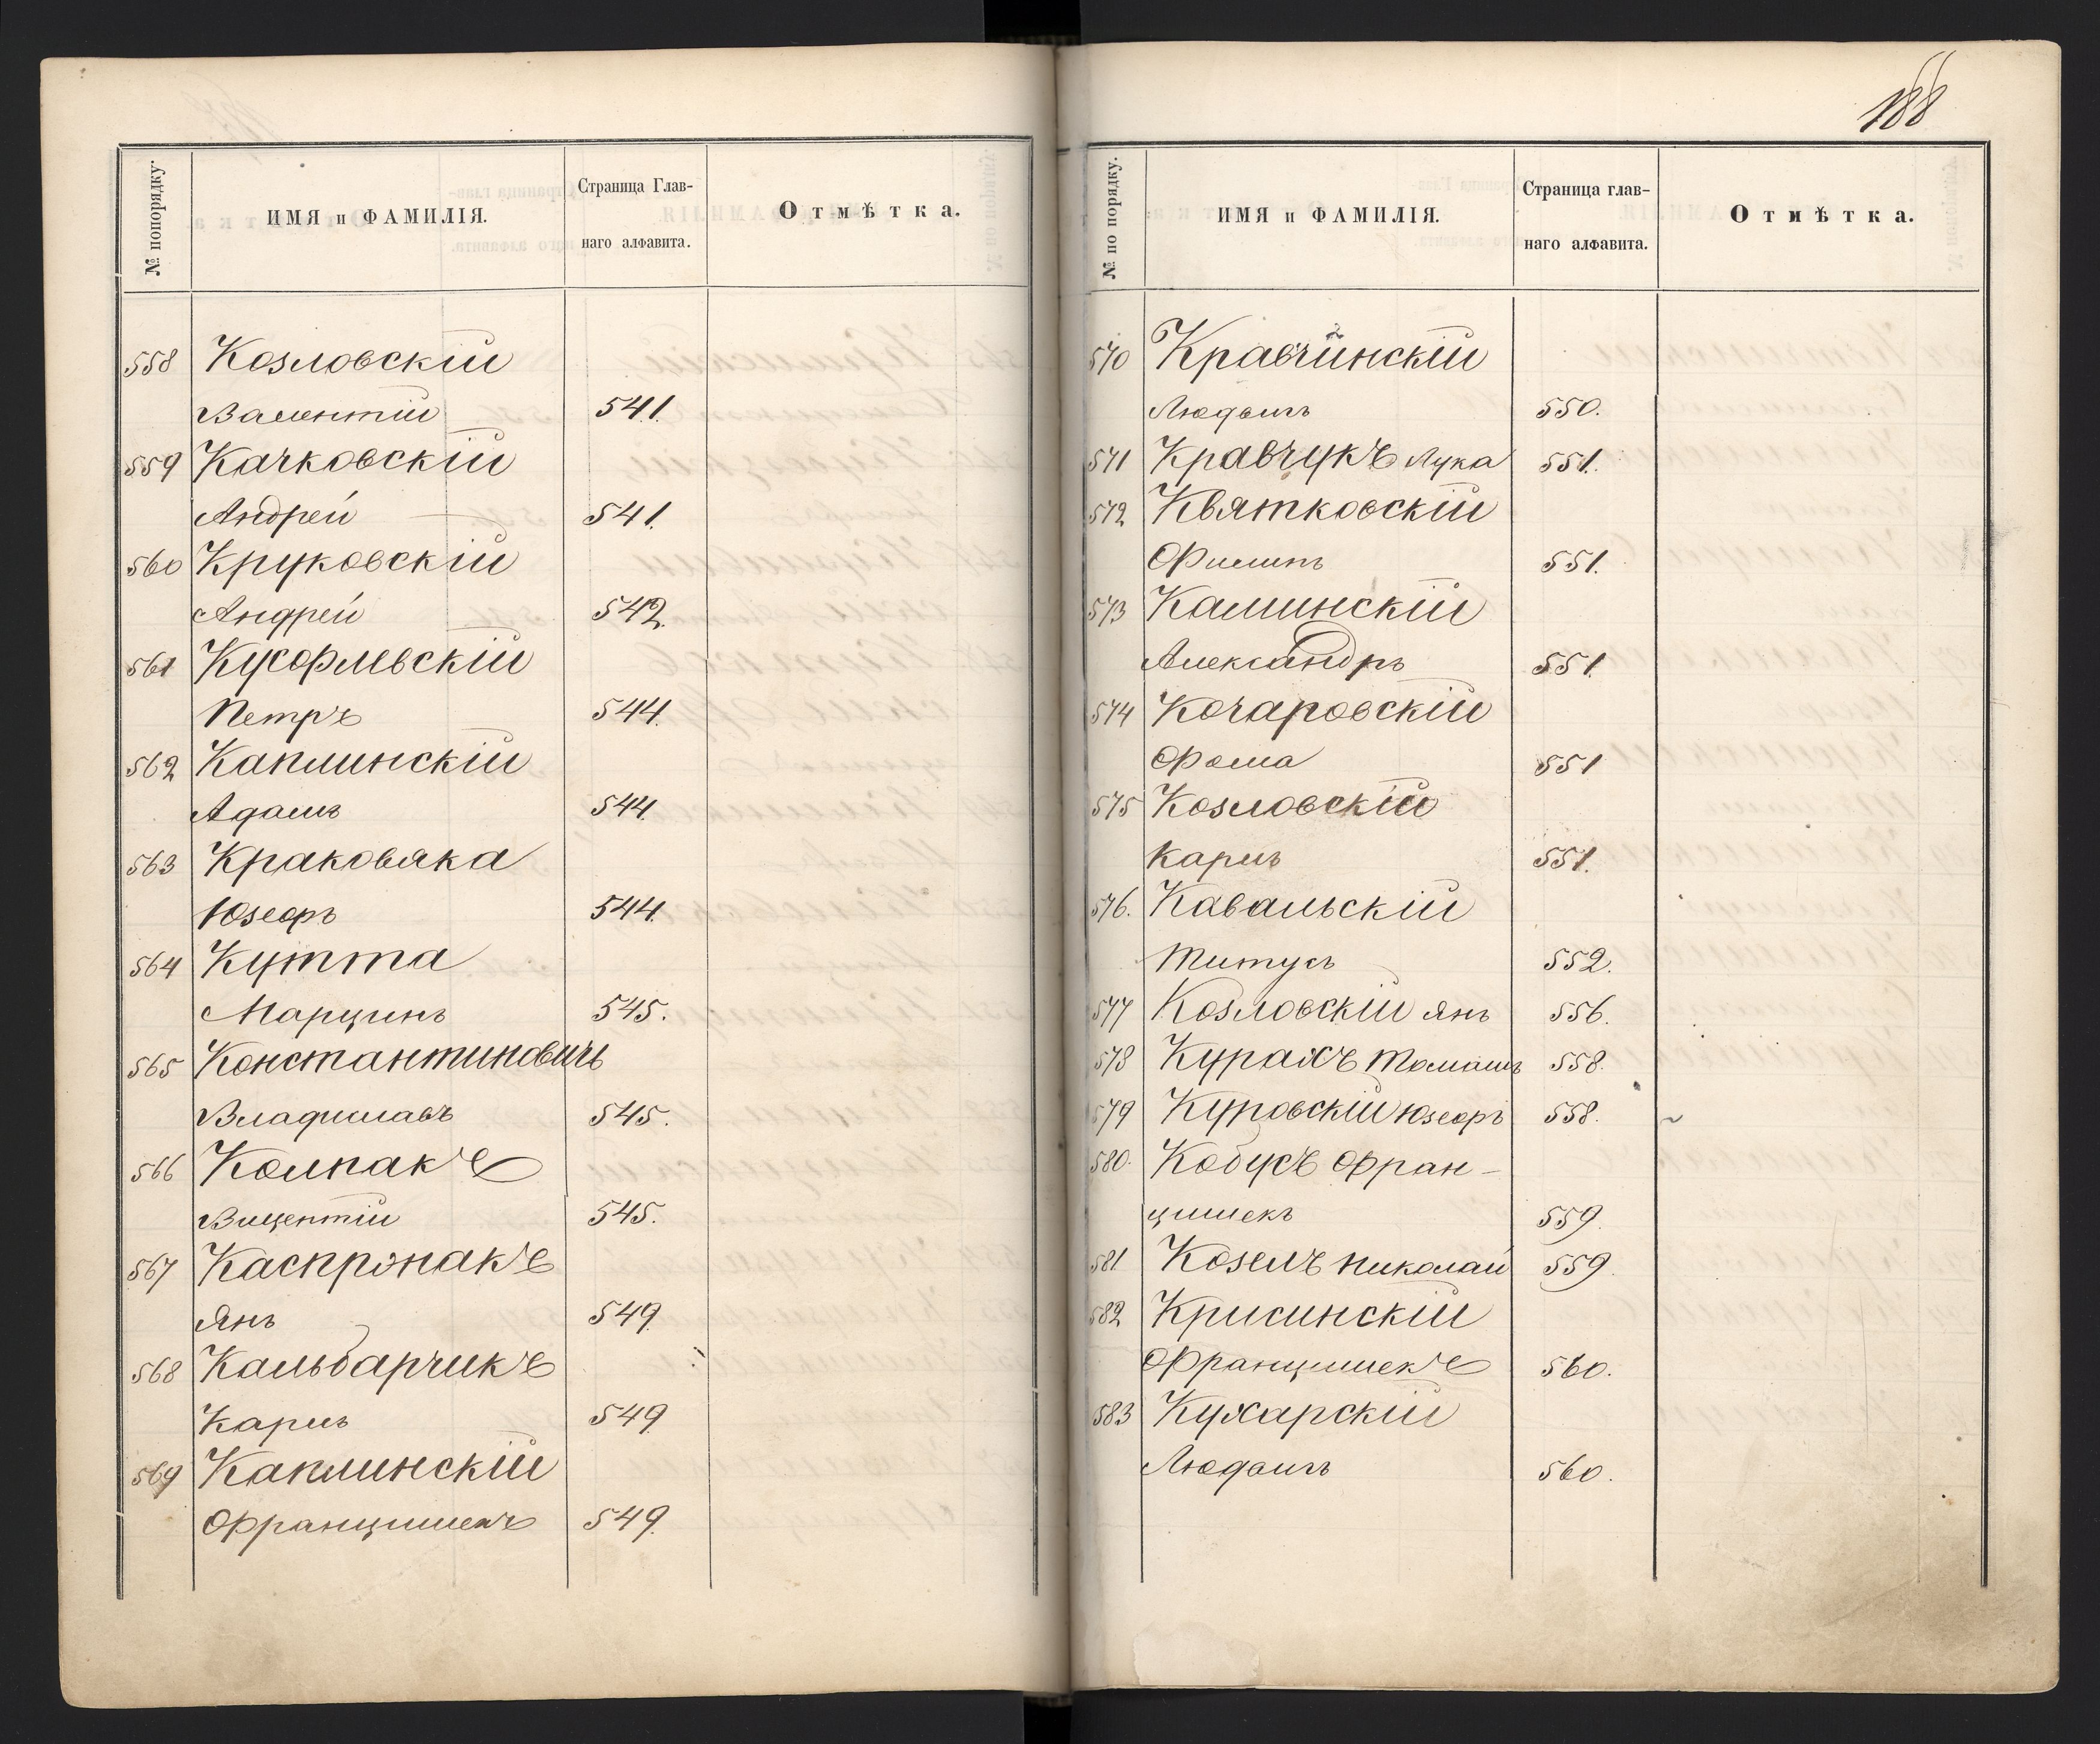 188
№ попорядку. ИМЯ и ФАМИЛІЯ. Страница Глав-наго алфавита. Отмѣтка.
558 Козловскій
Валентій 541.
559 Качковскій
Андрей 541.
560 Круковскій
Андрей 542.
561
Петръ 544.
562 Каплинскій
Адамъ 544.
563 Краковяка
Юзефъ 544.
564 Кутта
Марцинъ 545.
565 Константиновичъ
Владиславъ 545.
566 Колпакъ
Вицентій 545.
567 Каспржакъ
Янъ 549.
568 Кальбарчикъ
Карлъ 549
569 Каплинскій
Францишекъ 549.
№ по порядку. ИМЯ и ФАМИЛІЯ. Страница глав-наго алфавита. Отмѣтка.
570 Кравчинскій
Людвигъ 550.
571 Кравчукъ Лука 551.
572 Квятковскій
Филипъ 551.
573 Калинскій
Александръ 551.
574 Кочаровскій
Фома 551
575 Козловскій
Карлъ 551.
576. Кавальскій
Титусъ 552.
577 Козловскій Янъ 556.
578 Курахъ Томашъ 558.
579 Куровскій Юзефъ 558.
580. Кобусъ Фран-
цишекъ 559.
581 Козелъ Николай 559.
582 Крисинскій
Францишекъ 560.
583 Кухарскій
Людвигъ 560.